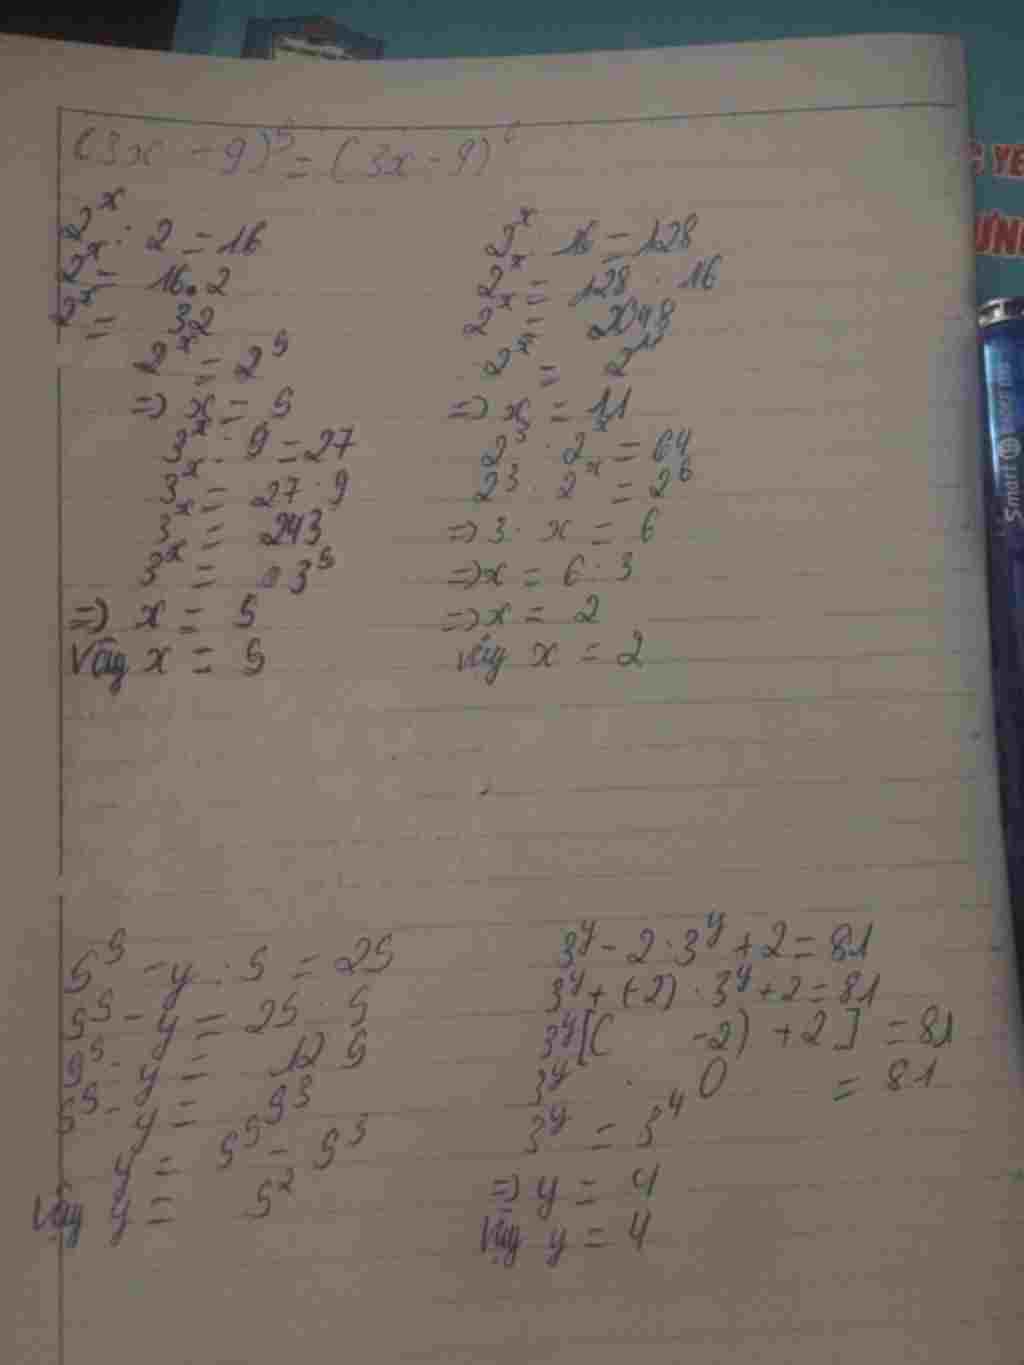 (3x - 9)⁵ = (3x - 9)
2ˣ : 2 = 16
2ˣ = 16.2
2ˣ = 32
2ˣ = 2⁵
=> x = 5
3ˣ : 9 = 27
3ˣ = 27 . 9
3ˣ = 243
3ˣ = 3⁵
=> x = 5
Vậy x = 5
2ˣ : 16 = 128
2ˣ = 128 . 16
2ˣ = 2048
2ˣ = 2¹¹
=> x = 11
2³ . 2ˣ = 64
2³ . 2ˣ = 2⁶
=> 3 . x = 6
=> x = 6 : 3
=> x = 2
Vậy x = 2
5⁵ - y : 5 = 25
5⁵ - y = 25 . 5
5⁵ - y = 125
5⁵ - y = 5³
y = 5⁵ - 5³
Vậy y = 5²
3ʸ - 2 . 3ʸ + 2 = 81
3ʸ + (-2) . 3ʸ + 2 = 81
3ʸ [( -2) + 2] = 81
3ʸ . 0 = 81
3ʸ = 3⁴
=> y = 4
Vậy y = 4
YÊ
ƯN
Smart